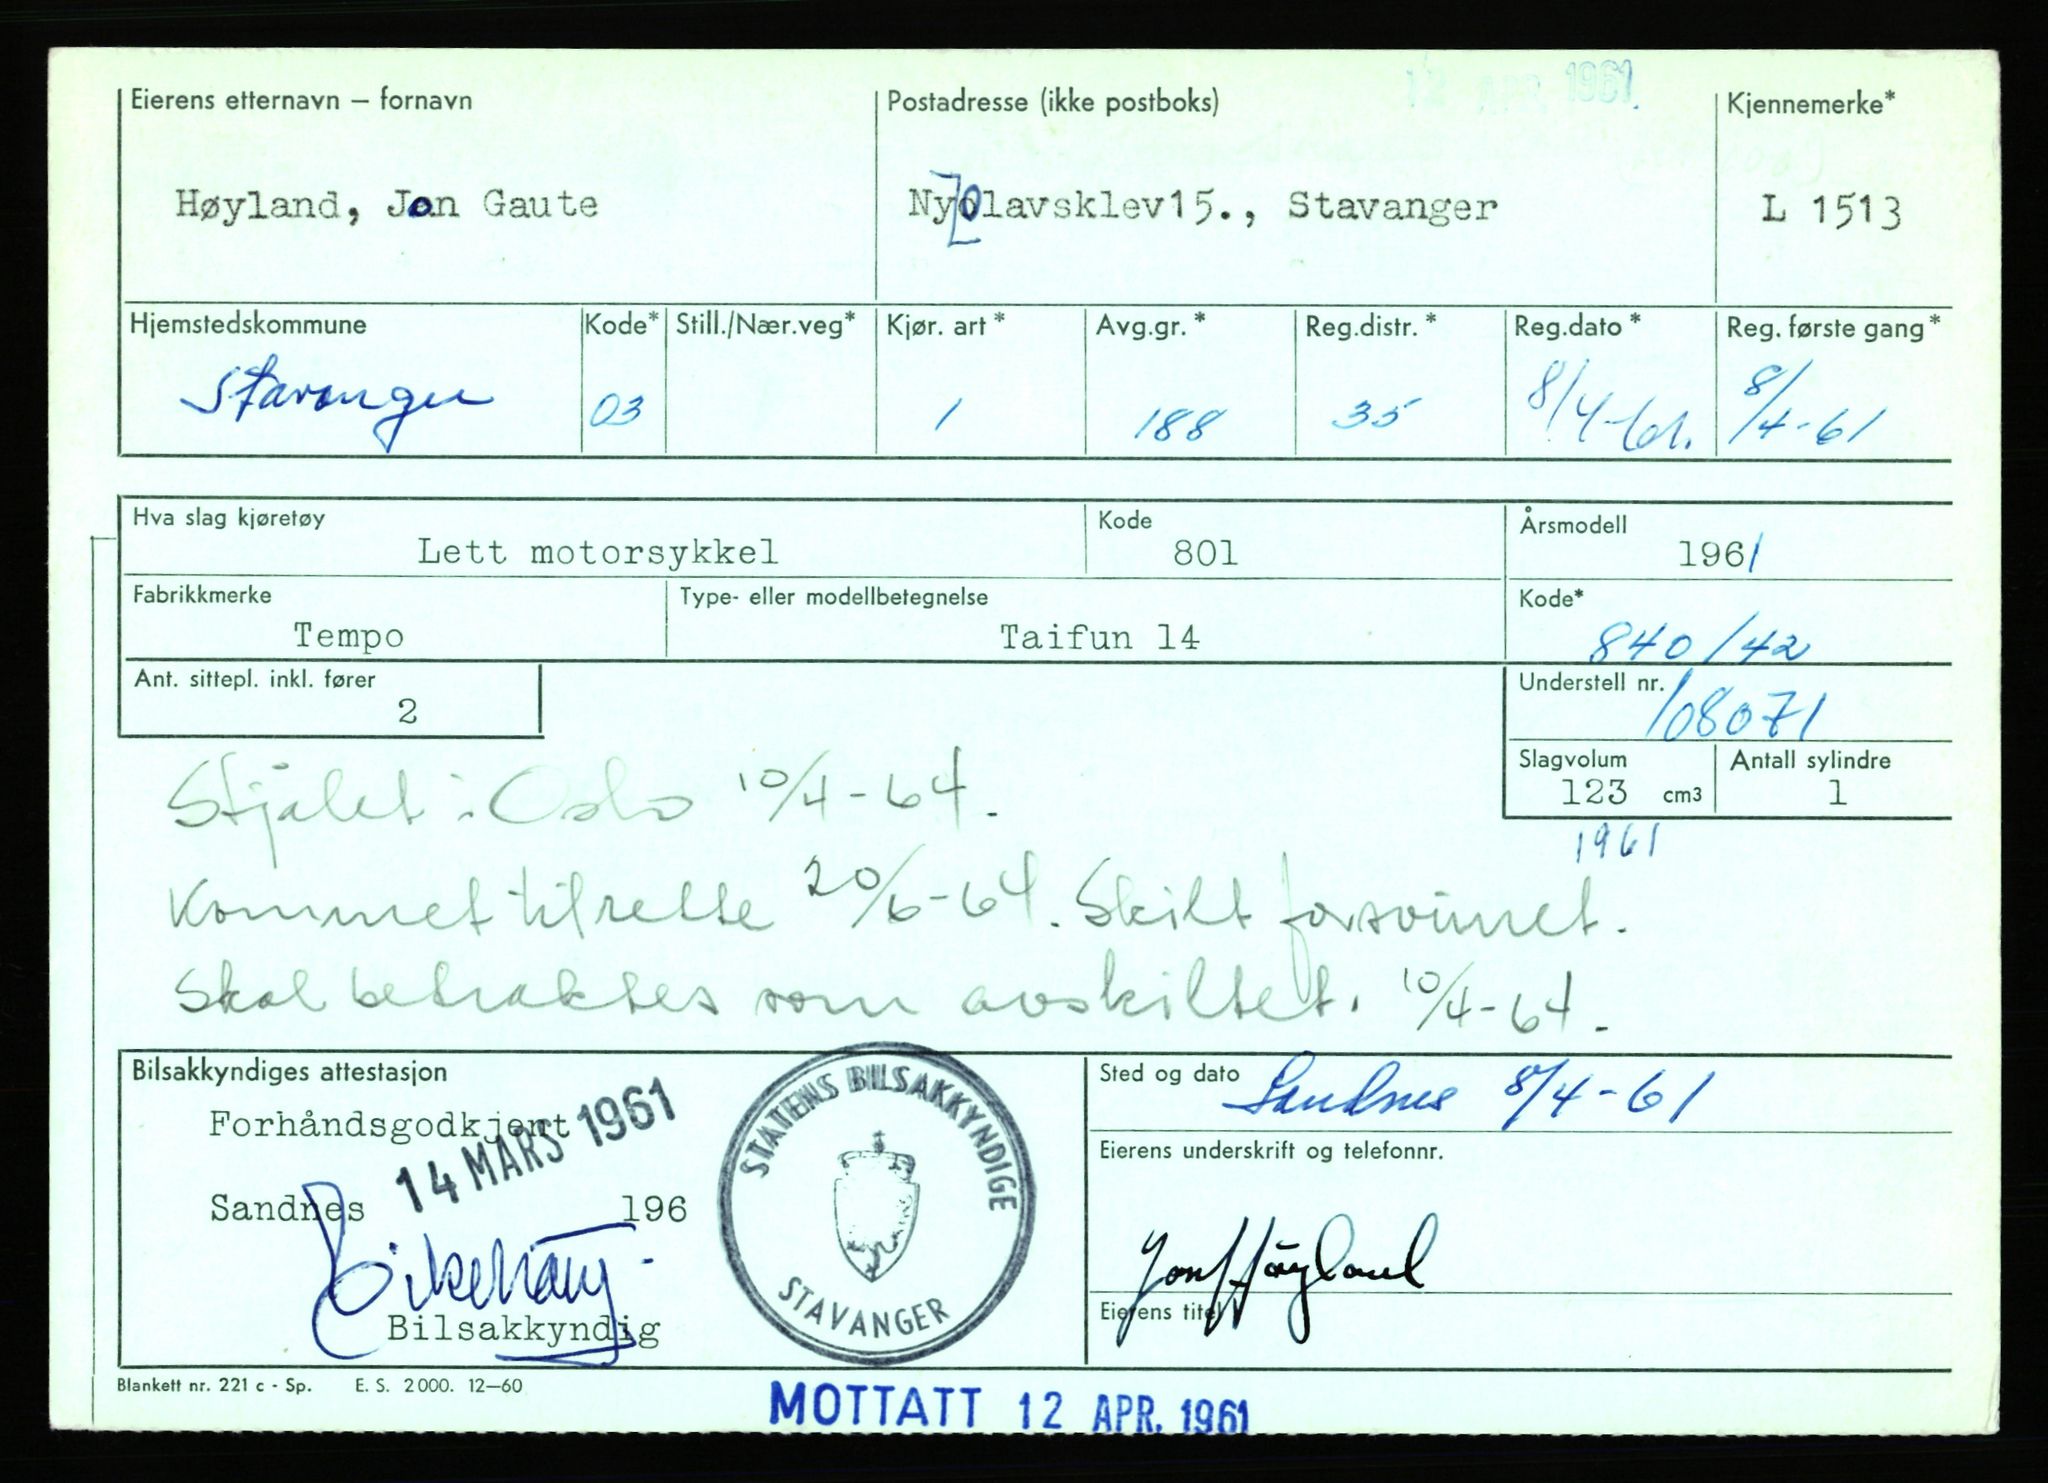 12 APR. 1961
Eierens etternavn — fornavn
Postadresse (ikke postboks)
Kjennemerke*
Høyland, Jon Gaute
Ny Olavsklev15., Stavanger
L 1513
Hjemstedskommune
Kode*
Still./Nær.veg*
Kjør. art *
Avg.gr. *
Reg.distr. *
Reg.dato *
Reg. første gang *
Stavanger
03
1
188
35
8/4-61.
8/4-61
Hva slag kjøretøy
Lett motorsykkel
Kode
801
Årsmodell
1961
Fabrikkmerke
Tempo
Type- eller modellbetegnelse
Taifun 14
Kode*
840/42
Ant. sittepl. inkl. fører
2
Understell nr.
108071
Slagvolum
123 cm3
Antall sylindre
1
1961
Stjålet i Oslo 10/4-64.
Kommet tilrette 20/6-64. Skilt forsvinnet.
Skal betraktes som avskiltet. 10/4-64.
Bilsakkyndiges attestasjon
Forhåndsgodkjent
14 MARS 1961
Sandnes 196
Bilsakkyndig
STATENS BILSAKKYNDIGE
STAVANGER
Sted og dato
Sandnes 8/4-61
Eierens underskrift og telefonnr.
Jon Høyland
Eierens titel
Blankett nr. 221 c - Sp. E. S. 2000. 12—60
MOTTATT 12 APR. 1961